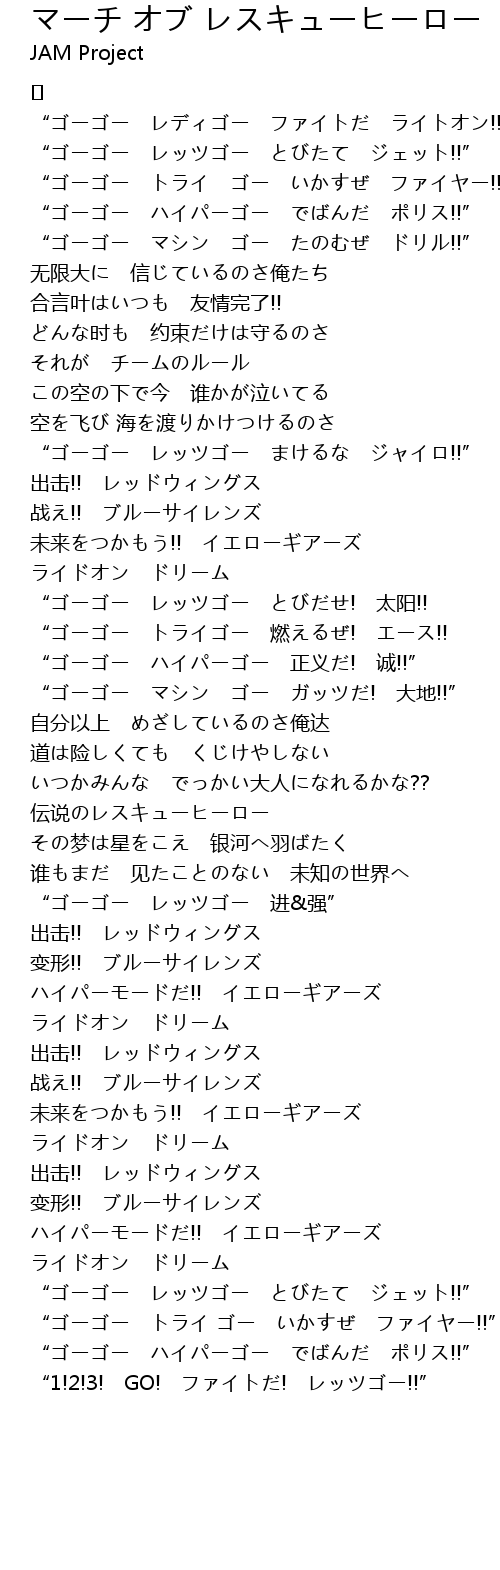 マーチ オブ レスキューヒーロー
JAM Project
[]
“ゴーゴー　レディゴー　ファイトだ　ライトオン!!
“ゴーゴー　レッツゴー　とびたて　ジェット!!”
“ゴーゴー　トライ　ゴー　いかすぜ　ファイヤー!!
“ゴーゴー　ハイパーゴー　でばんだ　ポリス!!”
“ゴーゴー　マシン　ゴー　たのむぜ　ドリル!!”
无限大に　信じているのさ俺たち
合言叶はいつも　友情完了!!
どんな时も　约束だけは守るのさ
それが　チームのルール
この空の下で今　谁かが泣いてる
空を飞び 海を渡りかけつけるのさ
“ゴーゴー　レッツゴー　まけるな　ジャイロ!!”
出击!!　レッドウィングス
战え!!　ブルーサイレンズ
未来をつかもう!!　イエローギアーズ
ライドオン　ドリーム
“ゴーゴー　レッツゴー　とびだせ!　太阳!!
“ゴーゴー　トライゴー　燃えるぜ!　エース!!
“ゴーゴー　ハイパーゴー　正义だ!　诚!!”
“ゴーゴー　マシン　ゴー　ガッツだ!　大地!!”
自分以上　めざしているのさ俺达
道は险しくても　くじけやしない
いつかみんな　でっかい大人になれるかな??
伝说のレスキューヒーロー
その梦は星をこえ　银河へ羽ばたく
谁もまだ　见たことのない　未知の世界へ
“ゴーゴー　レッツゴー　进&强”
出击!!　レッドウィングス
变形!!　ブルーサイレンズ
ハイパーモードだ!!　イエローギアーズ
ライドオン　ドリーム
出击!!　レッドウィングス
战え!!　ブルーサイレンズ
未来をつかもう!!　イエローギアーズ
ライドオン　ドリーム
出击!!　レッドウィングス
变形!!　ブルーサイレンズ
ハイパーモードだ!!　イエローギアーズ
ライドオン　ドリーム
“ゴーゴー　レッツゴー　とびたて　ジェット!!”
“ゴーゴー　トライ ゴー　いかすぜ　ファイヤー!!”
“ゴーゴー　ハイパーゴー　でばんだ　ポリス!!”
“1!2!3!　GO!　ファイトだ!　レッツゴー!!”